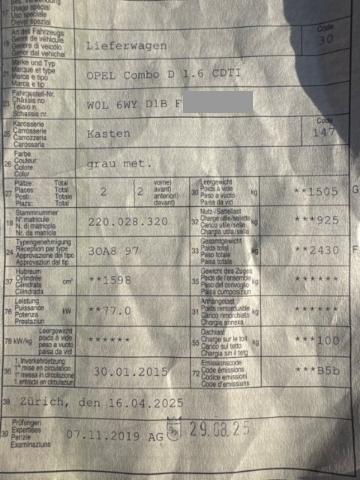 Usage spécial
Uso speciale
Diever spezial
Art des Fahrzeugs
Genre de véhicule
Genere di veicolo
Gener dal vehichel
Lieferwagen
Code
30
Marke und Typ
Marque et type
Marca e tipo
Marca e tip
OPEL Combo D 1.6 CDTI
Fahrgestell-Nr.
Châssis no
Telaio n.
Schassis nr.
W0L 6WY D1B F
25
Karosserie
Carrosserie
Carrozzeria
Carossaria
Kasten
Code
147
26
Farbe
Couleur
Colore
Color
grau met.
27
Plätze: Total
Places: Total
Posti: Totale
Plazs: Total
2
2
vorne)
avant)
anteriori)
davant)
30
Leergewicht
Poids à vide
Peso a vuoto
Paisa da vid
kg
**1505
G
18
Stammnummer
N° matricule
N. di matricola
Nr. da matricla
220.028.320
32
Nutz-/Sattellast
Charge utile/sellette
Carico utile/sella
Chargia utila/sella
kg
***925
24
Typengenehmigung
Réception par type
Approvazione del tipo
Approvaziun dal tip
3OA8 97
33
Gesamtgewicht
Poids total
Peso totale
Paisa totala
kg
**2430
F
37
Hubraum
Cylindrée
Cilindrata
Cilindrada
cm³
**1598
35
Gewicht des Zuges
Poids de l'ensemble
Peso del convoglio
Paisa cumposiziun
kg
******
76
Leistung
Puissance
Potenza
Prestaziun
kW
**77.0
31
Anhängelast
Poids remorquable
Carico rimorchiato
Chargia annexa
kg
******
78 kW/kg
Leergewicht
poids à vide
peso a vuoto
paisa da vid
******
55
Dachlast
Charge sur le toit
Carico sul tetto
Chargia sin il tetg
kg
***100
36
1. Inverkehrsetzung
1re mise en circulation
1a messa in circolazione
1. entrada en circulaziun
30.01.2015
72
Emissionscode
Code émissions
Codice emissioni
Code d'emissiuns
***B5b
38
Zürich, den 16.04.2025
39
Prüfungen
Expertises
Perizie
Examinaziuns
07.11.2019 AG
29.08.25